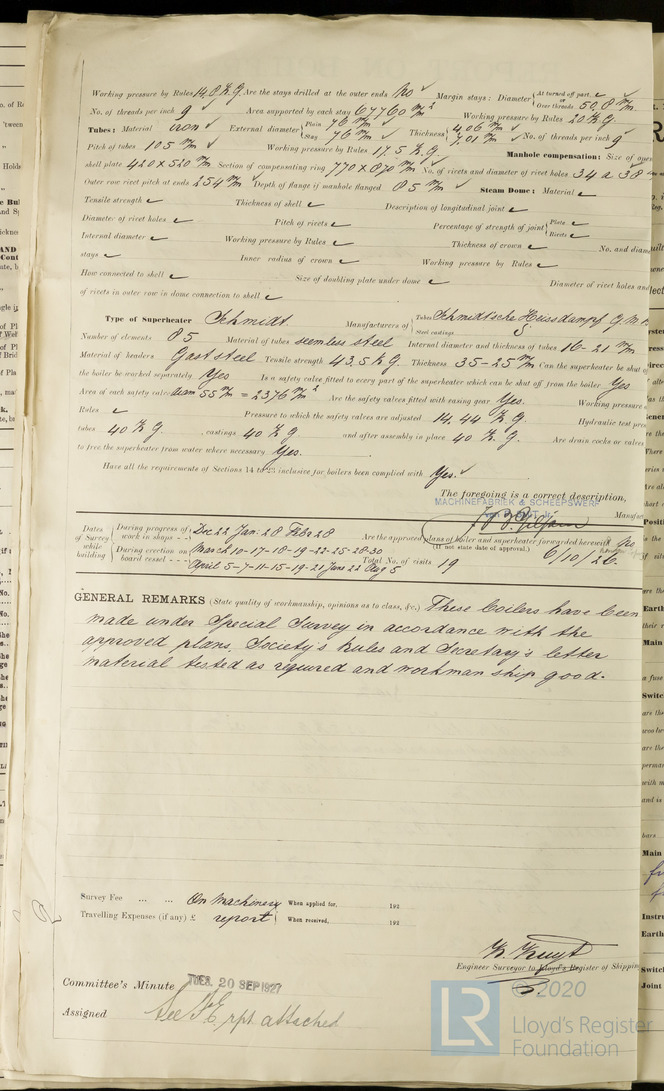 Working pressure by Rules 14.8 K.G. Are the stays drilled at the outer ends No ✓ Margin stays: Diameter { At turned off part, or Over threads 50.8 m/m
No. of threads per inch 9 ✓ Area supported by each stay 67760 m/m² Working pressure by Rules 20 K.G.
Tubes: Material iron ✓ External diameter { Plain 76 m/m Stay 76 m/m ✓ Thickness { 4.06 m/m 7.01 m/m ✓ No. of threads per inch 9 ✓
Pitch of tubes 105 m/m ✓ Working pressure by Rules 17.5 K.G. Manhole compensation: Size of
shell plate 420 x 520 m/m. Section of compensating ring 770 x 870 m/m. No. of rivets and diameter of rivet holes 34 a 38
Outer row rivet pitch at ends 254 m/m ✓ Depth of flange if manhole flanged 85 m/m ✓ Steam Dome: Material ✓
Tensile strength ✓ Thickness of shell ✓ Description of longitudinal joint ✓
Diameter of rivet holes ✓ Pitch of rivets ✓ Percentage of strength of joint { Plate ✓ Rivets ✓
Internal diameter ✓ Working pressure by Rules ✓ Thickness of crown ✓ No. and
stays ✓ Inner radius of crown ✓ Working pressure by Rules ✓
How connected to shell ✓ Size of doubling plate under dome ✓ Diameter of rivet holes
of rivets in outer row in dome connection to shell ✓
Type of Superheater Schmidt. Manufacturers of { Tubes Schmidtsche Heissdampf G.M. Steel castings
Number of elements 85 Material of tubes seemless steel Internal diameter and thickness of tubes 16-21 m/m
Material of headers Gaststeel Tensile strength 43.5 K.G. Thickness 35-25 m/m Can the superheater be shut
the boiler be worked separately Yes Is a safety valve fitted to every part of the superheater which can be shut off from the boiler Yes
Area of each safety valve diam 55 m/m = 2376 m/m² Are the safety valves fitted with easing gear Yes. Working pressure
Rules ✓ Pressure to which the safety valves are adjusted 14.44 K.G. Hydraulic test
tubes 40 K.G. castings 40 K.G and after assembly in place 40 K.G. Are drain cocks or valves
to free the superheater from water where necessary Yes.
Have all the requirements of Sections 14 to 23 inclusive for boilers been complied with Yes. ✓
The foregoing is a correct description,
MACHINEFABRIEK & SCHEEPSWERF
Dates of Survey while building { During progress of work in shops - - Dec 22 Jan. 28 Feb 28 Are the approved plans of boiler and superheater forwarded herewith
(If not state date of approval.) 6/10/26.
During erection on board vessel - - - March 10-17-18-19-22-25-28-30 April 5-7-11-15-19-21 June 22 Aug 5 Total No. of visits 19
GENERAL REMARKS (State quality of workmanship, opinions as to class, &c.) These boilers have been
made under Special Survey in accordance with the
approved plans, Society's Rules and Secretary's letter
material tested as required and workmanship good.
Survey Fee ... ... On machinery When applied for, 192
Travelling Expenses (if any) £ report When received, 192
Engineer Surveyor to Lloyd's Register of
Committee's Minute TUES. 20 SEP 1927
Assigned See F.E. rpt attached
© 2020
LR
Lloyd's Register
Foundation